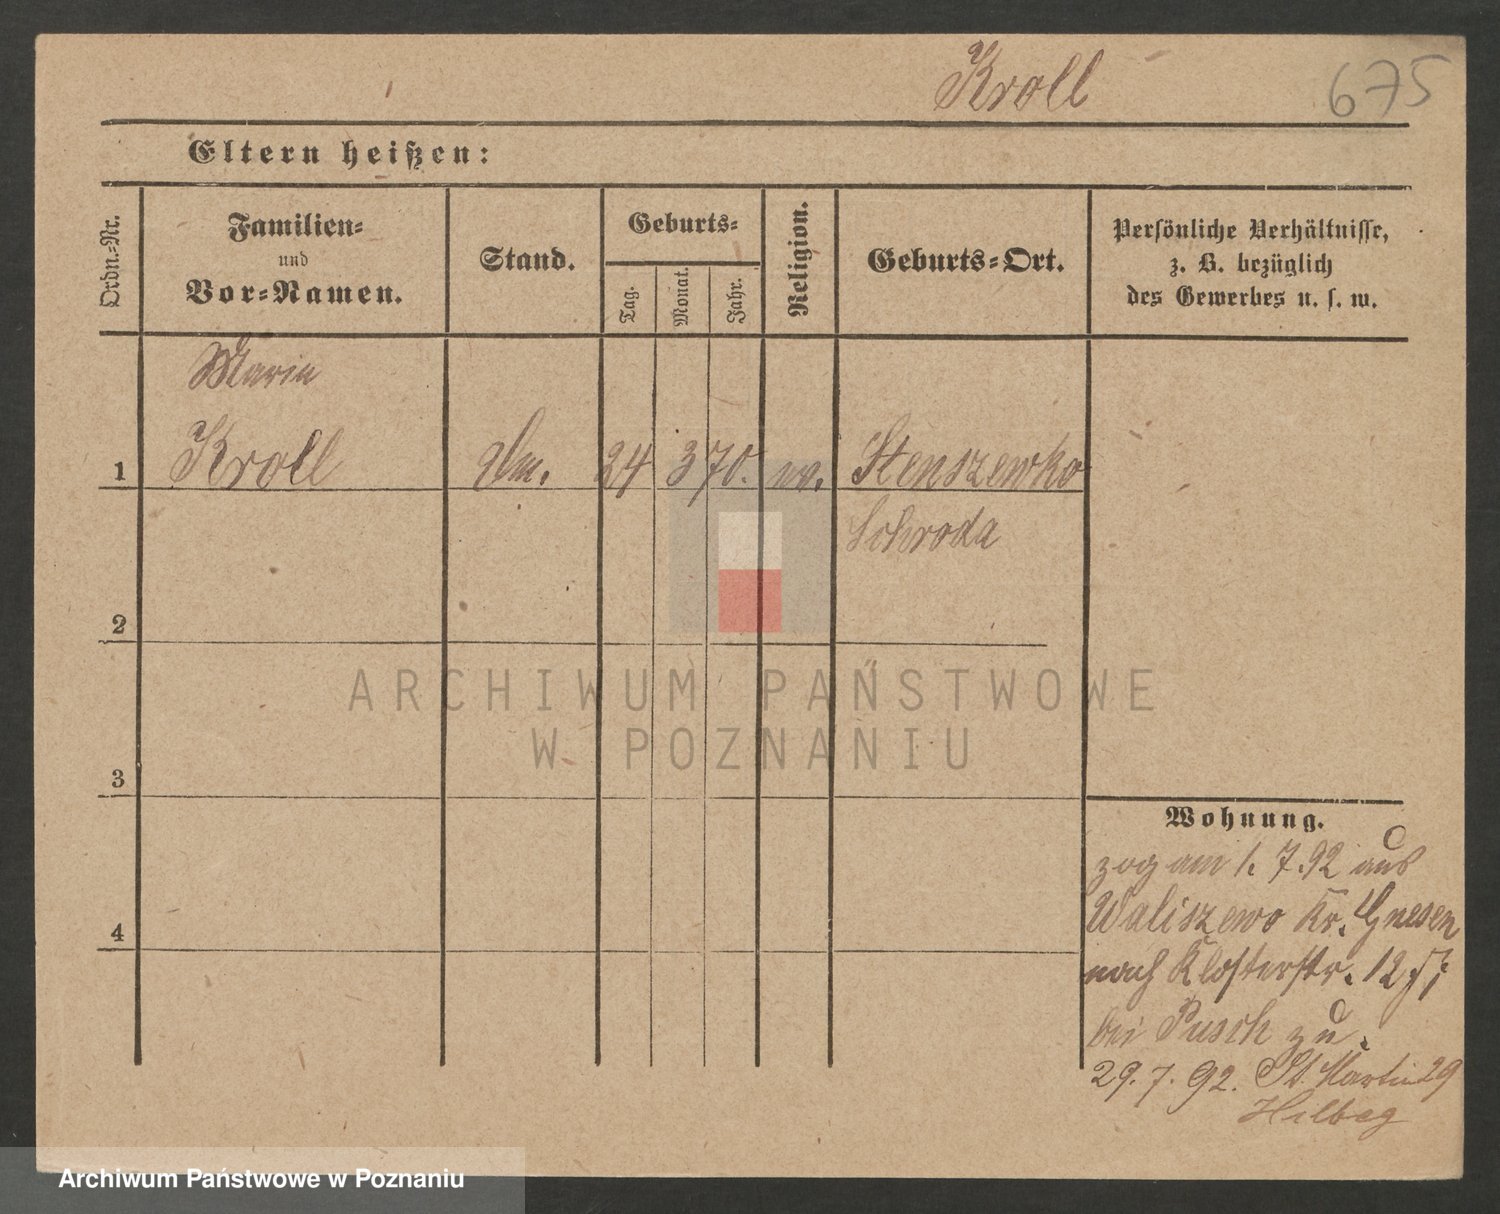 Kroll
675
Eltern heißen:
Ordn.-Nr.
Familien-
und
Vor-Namen.
Stand.
Geburts-
Tag.
Monat.
Jahr.
Religion.
Geburts-Ort.
Persönliche Verhältnisse,
z. B. bezüglich
des Gewerbes u. s. w.
Marie
1 Kroll 24 3 70. ev. Stenszewko
Schroda
2
3
4
Wohnung.
zog am 1. 7. 92 aus
Waliszewo Kr. Gnesen
nach Klosterstr. 12
bei Pusch zu.
29. 7. 92. St. Martin 29
ARCHIWUM PAŃSTWOWE
W POZNANIU
Archiwum Państwowe w Poznaniu